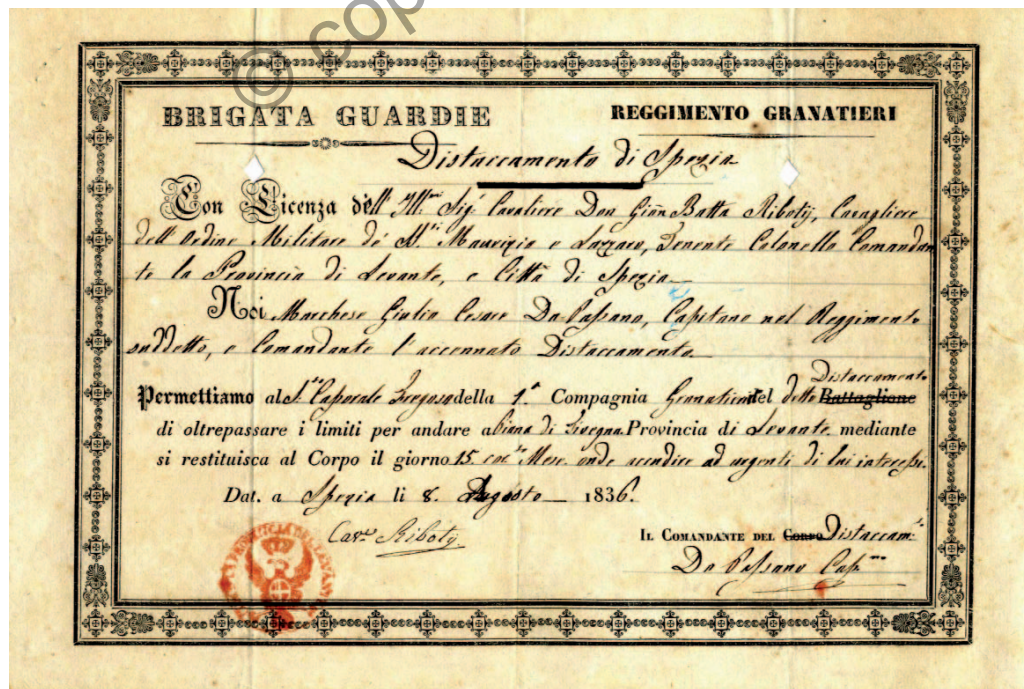 © cop
BRIGATA GUARDIE
REGGIMENTO GRANATIERI
Distaccamento di Spezia
Con Licenza dell' Ill.mo Sig.r Cavaliere Don Giôn Batta Riboty, Cavagliere
dell'Ordine Militare de' S.ti Maurizio e Lazzaro, Tenente Colonello Comandan
te la Provincia di Levante, e Città di Spezia
Noi Marchese Giulio Cesare Da Passano, Capitano nel Reggimento
suddetto, e Comandante l'accennato Distaccamento
Permettiamo al Caporale Fregoso della 1.a Compagnia Granatieri del detto Battaglione Distaccamento
di oltrepassare i limiti per andare a Piana di Provincia di Levante mediante
si restituisca al Corpo il giorno 15. Mese onde accudire ad urgenti di lui interessi.
Dat. a Spezia li 8. Agosto 1836.
Cav.re Riboty
IL COMANDANTE DEL Corpo Distaccam.to
Da Passano Cap.no